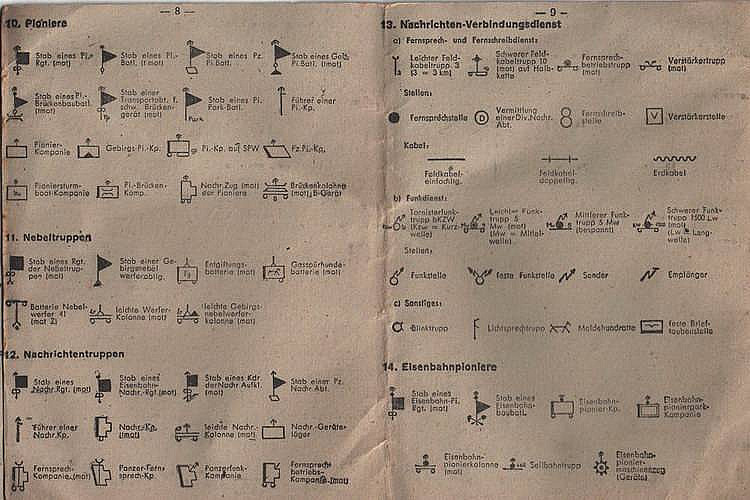 — 8 —
10. Pioniere
Stab eines Pi.-
Rgt. (mot)
Stab eines Pi.-
Batl. (t mot)
Stab eines Pz.
Pi.Batl.
Stab eines Geb.
Pi.Batl. (mot)
Stab eines Pi.-
Brückenbaubatl.
(mot)
Stab einer
Transportabt. f.
schw. Brücken-
gerät (mot)
Park
Stab eines Pi.
Park-Batl.
Führer einer
Pi.-Kp.
Pionier-
Kompanie
Gebirgs-Pi.-Kp.
Pi.-Kp. auf SPW
Pz.Pi.-Kp.
Pioniersturm-
boot-Kompanie
Pi.-Brücken-
Komp.
Nachr.Zug (mot)
der Pioniere
Brückenkolonne
(mot)
11. Nebeltruppen
Stab eines Rgt.
der Nebeltrup-
pen (mot)
Stab einer Ge-
birgsnebel
werferabtlg.
Entgiftungs-
batterie (mot)
Gasspürhunde-
batterie (mot)
Batterie Nebel-
werfer 41
(mot Z)
leichte Werfer-
Kolonne (mot)
leichte Gebirgs-
nebelwerfer-
kolonne (mot)
12. Nachrichtentruppen
Stab eines
Nachr.Rgt. (mot)
Stab eines
Eisenbahn-
Nachr.-Rgt.(mot)
Stab eines Kdr.
der Nachr. Aufkl.
(mot)
Stab einer Pz.
Nachr. Abt.
Führer einer
Nachr.Kp.
Nachr.-Kp.
(mot)
leichte Nachr.-
Kolonne (mot)
Nachr.-Geräte-
läger
Fernsprech-
Kompanie (mot)
Panzer-Fern-
sprech-Kp.
Panzerfunk-
Kompanie
Fernsprech-
betriebs-
Kompanie (mot)
— 9 —
13. Nachrichten-Verbindungsdienst
a) Fernsprech- und Fernschreibdienst:
Leichter Feld-
kabeltrupp 3
(3 = 3 km)
Schwerer Feld-
kabeltrupp 10
(mot) auf Halb-
kette
Fernsprech-
betriebstrupp
(mot)
Verstärkertrupp
(mot)
Stellen:
Fernsprechstelle
D
Vermittlung
einer Div. Nachr.
Abt.
Fernschreib-
stelle
V
Verstärkerstelle
Kabel:
Feldkabel-
einfachltg.
Feldkabel-
doppelltg.
Erdkabel
b) Funkdienst:
Tornisterfunk-
trupp bKZW
(Kzw = Kurz-
welle)
Leichter Funk-
trupp 5
Mw (mot)
(Mw = Mittel-
welle)
Mittlerer Funk-
trupp 5 Mw
(bespannt)
Schwerer Funk-
trupp 1500 Lw
(mot)
(Lw = Lang-
welle)
Stellen:
Funkstelle
feste Funkstelle
Sender
Empfänger
c) Sonstiges:
Blinktrupp
Lichtsprechtrupp
Meldehundrotte
feste Brief-
taubenstelle
14. Eisenbahnpioniere
Stab eines
Eisenbahn-Pi.
Rgt. (mot)
Stab eines
Eisenbahn-
baubatl.
Eisenbahn-
pionier-Kp.
Eisenbahn-
pionierpark-
Kompanie
Eisenbahn-
pionierkolonne
(mot)
Seilbahntrupp
Eisenbahn-
pionier-
(Geräte)